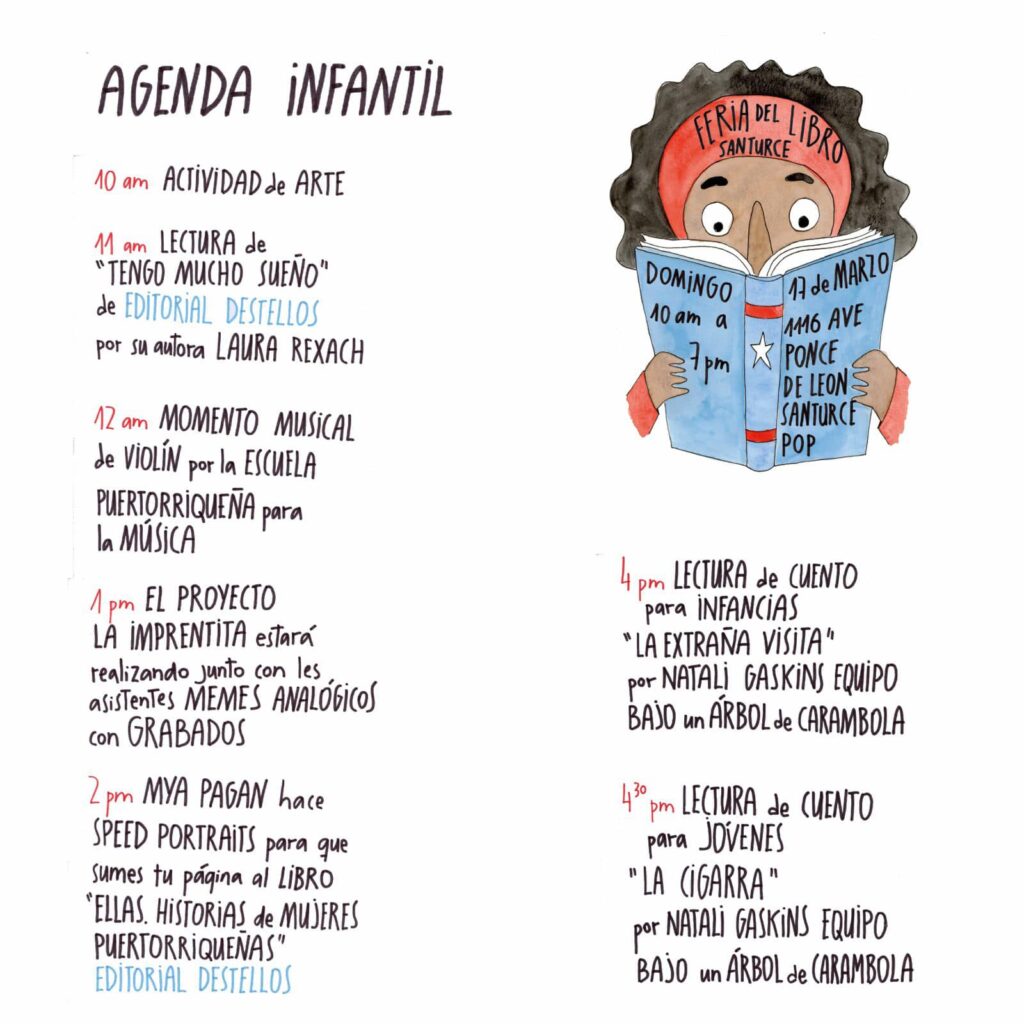 AGENDA INFANTIL
10 am ACTIVIDAD de ARTE
11 am LECTURA de
"TENGO MUCHO SUEÑO"
de EDITORIAL DESTELLOS
por su autora LAURA REXACH
12 am MOMENTO MUSICAL
de VIOLÍN por la ESCUELA
PUERTORRIQUEÑA para
la MÚSICA
1 pm EL PROYECTO
LA IMPRENTITA estará
realizando junto con les
asistentes MEMES ANALÓGICOS
con GRABADOS
2 pm MYA PAGAN hace
SPEED PORTRAITS para que
sumes tu página al LIBRO
"ELLAS. HISTORIAS de MUJERES
PUERTORRIQUEÑAS"
EDITORIAL DESTELLOS
FERIA DEL LIBRO
SANTURCE
DOMINGO
10 am a
7 pm
17 de MARZO
1116 AVE
PONCE
DE LEON
SANTURCE
POP
4 pm LECTURA de CUENTO
para INFANCIAS
"LA EXTRAÑA VISITA"
por NATALI GASKINS EQUIPO
BAJO un ÁRBOL de CARAMBOLA
4 30 pm LECTURA de CUENTO
para JÓVENES
"LA CIGARRA"
por NATALI GASKINS EQUIPO
BAJO un ÁRBOL de CARAMBOLA